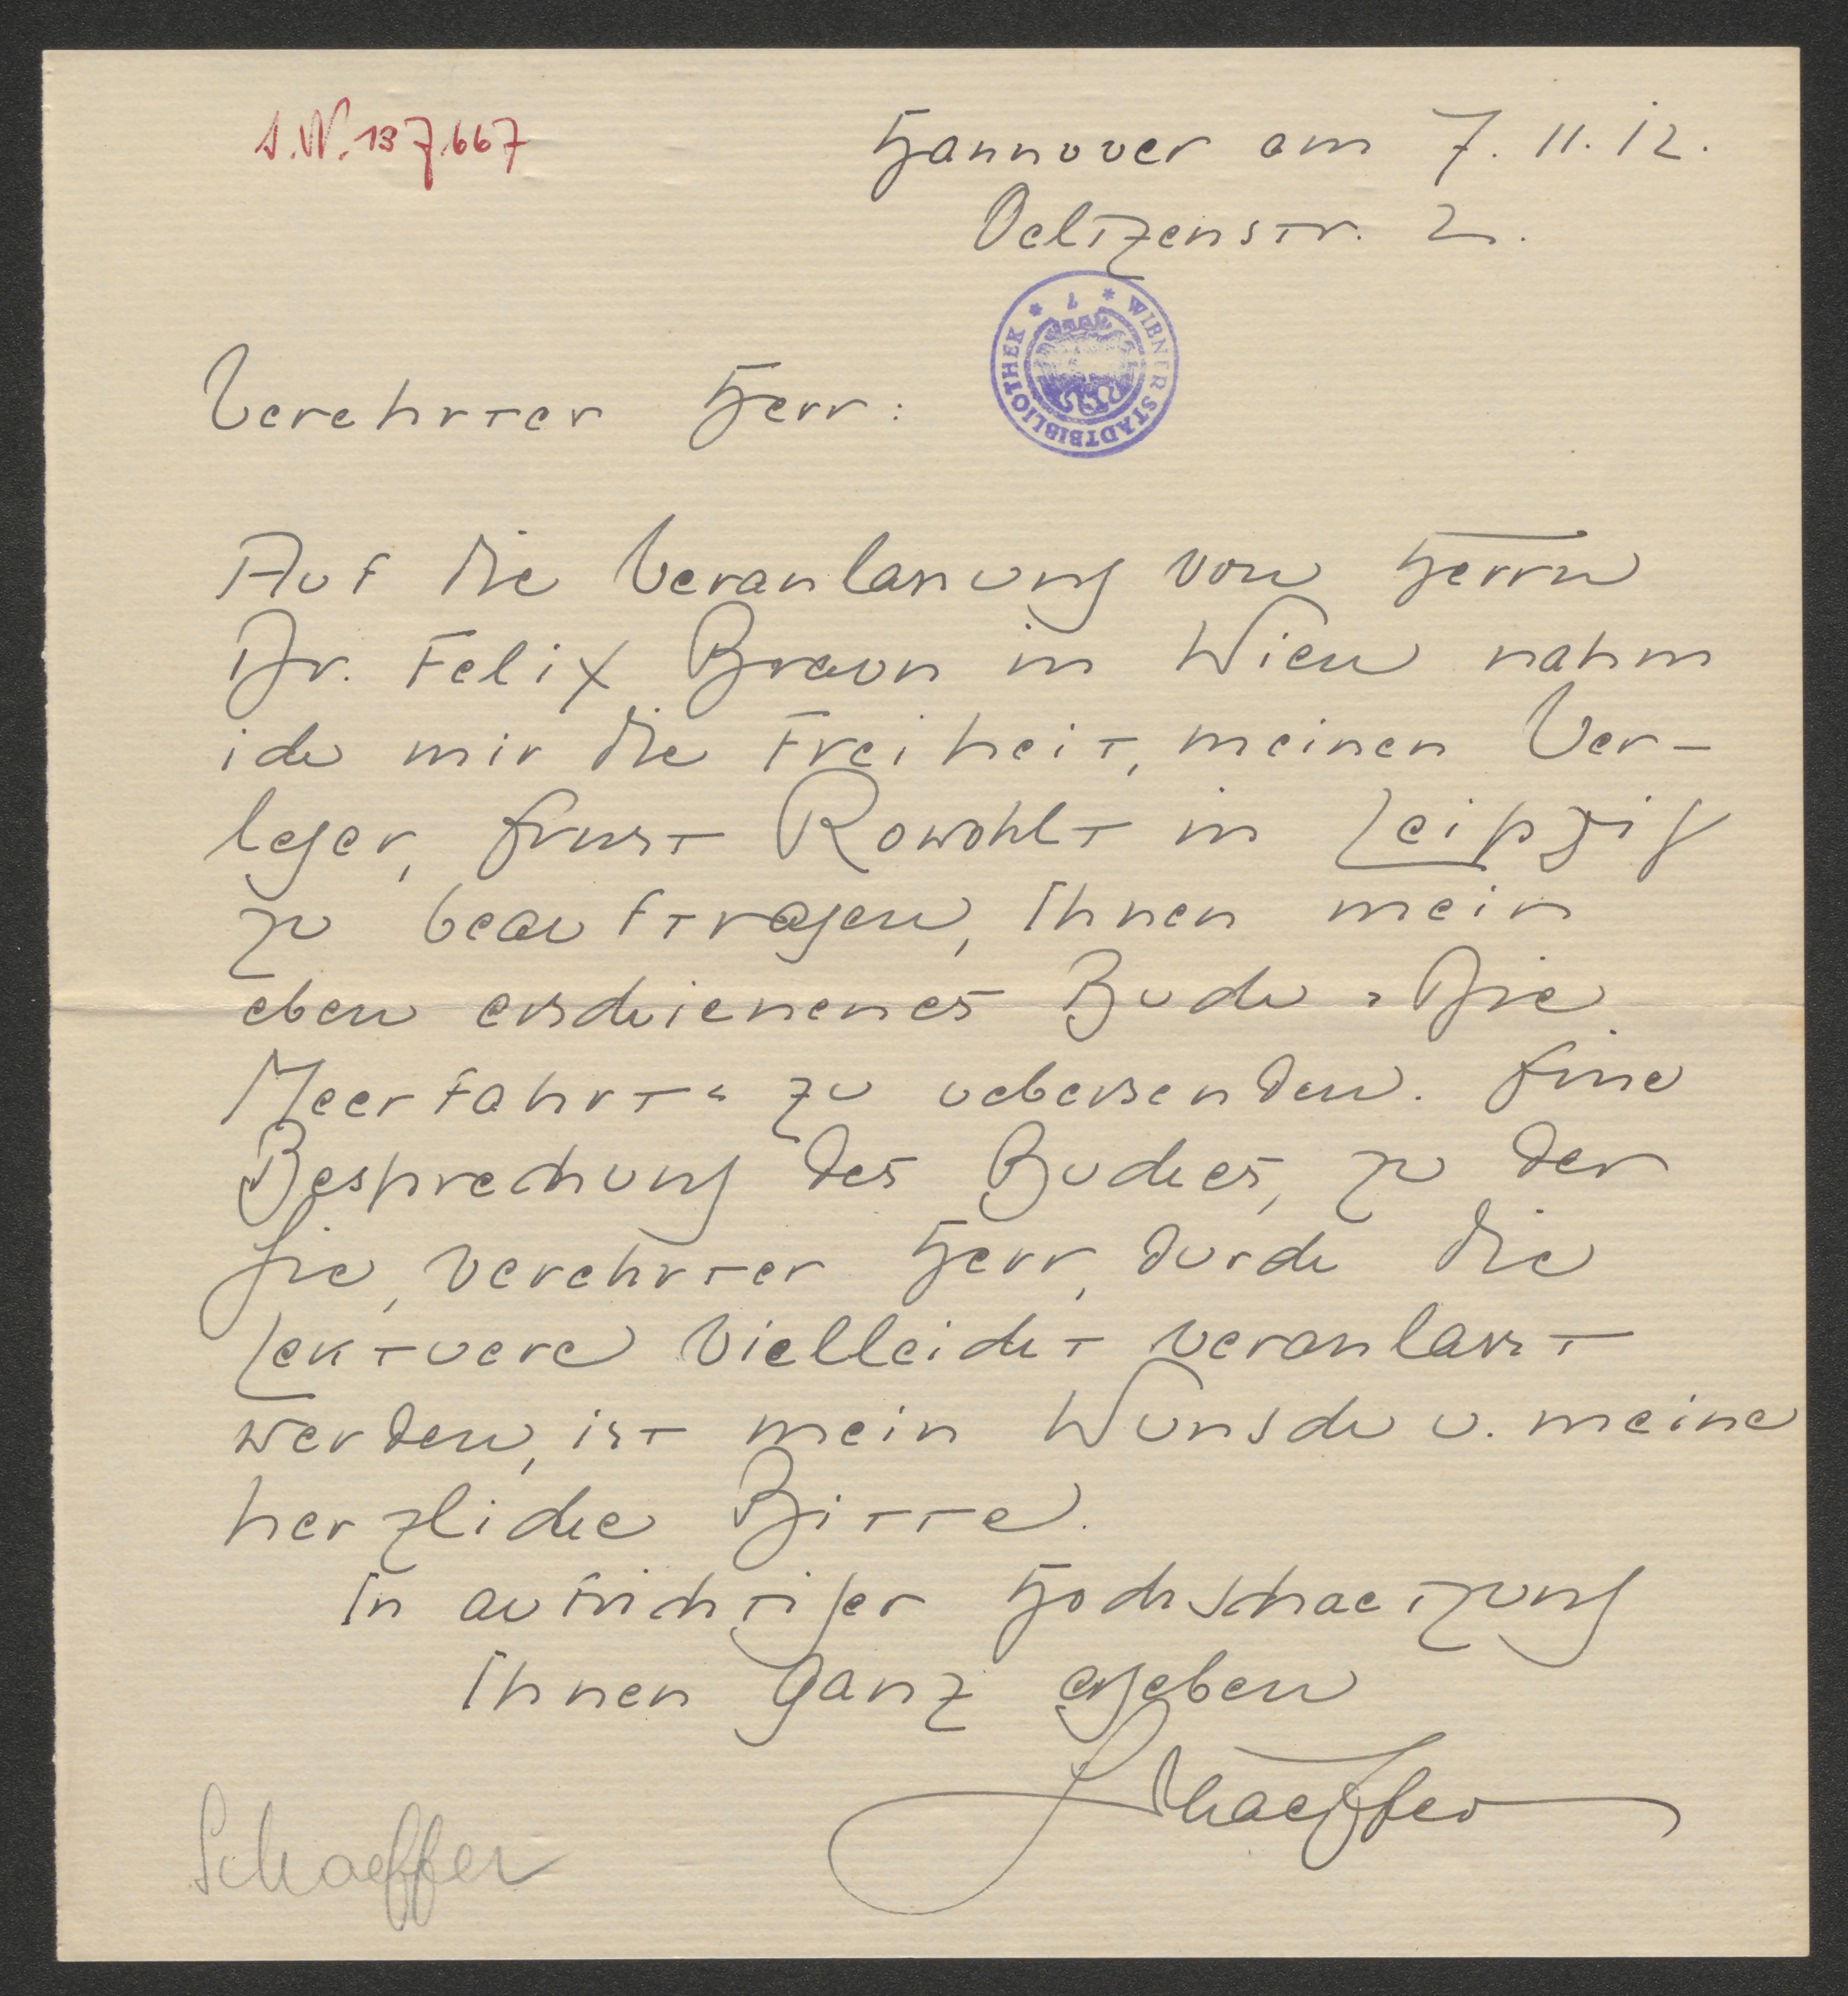 I.N. 137.667
Hannover am 7. 11. 12.
Oeltzenstr. 2.
WIENER STADTBIBLIOTHEK
Verehrter Herr:
Auf die Veranlassung von Herrn
Dr. Felix Braun in Wien nahm
ich mir die Freiheit, meinen Ver-
leger, Ernst Rowohlt in Leipzig
zu beauftragen, Ihnen mein
eben erschienenes Buch „Die
Meerfahrt“ zu uebersenden. Eine
Besprechung des Buches, zu der
Sie, verehrter Herr, durch die
Lektuere vielleicht veranlasst
werden, ist mein Wunsch u. meine
herzliche Bitte.
In aufrichtiger Hochschaetzung
Ihnen ganz ergeben
Schaeffer
Schaeffer